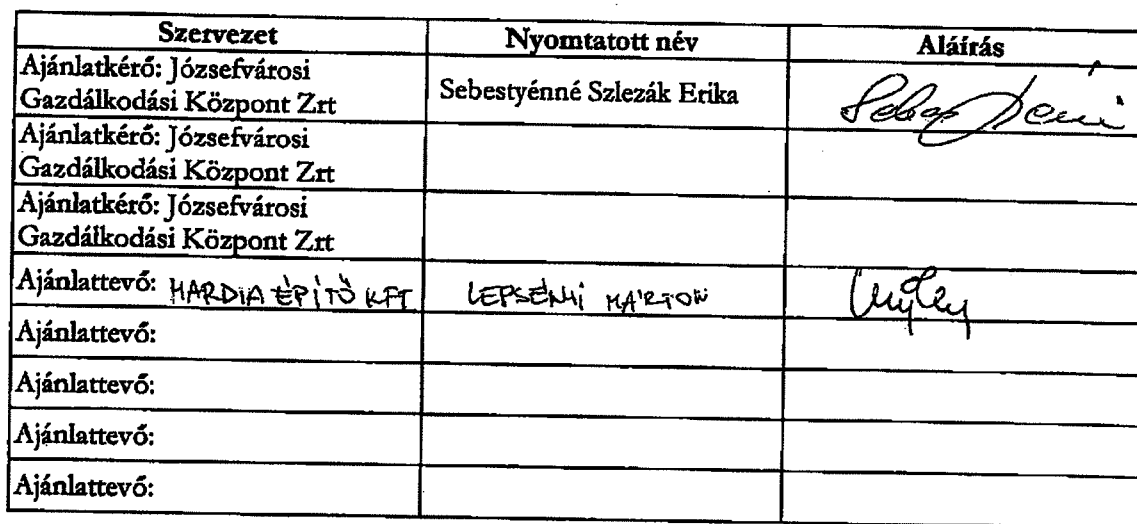 Szervezet Nyomtatott név Aláírás
Ajánlatkérő: Józsefvárosi
Gazdálkodási Központ Zrt Sebestyénné Szlezák Erika
Ajánlatkérő: Józsefvárosi
Gazdálkodási Központ Zrt
Ajánlatkérő: Józsefvárosi
Gazdálkodási Központ Zrt
Ajánlattevő: HARDIA ÉPÍTŐ KFT LEPSÉNYI MÁRTON
Ajánlattevő:
Ajánlattevő:
Ajánlattevő:
Ajánlattevő: